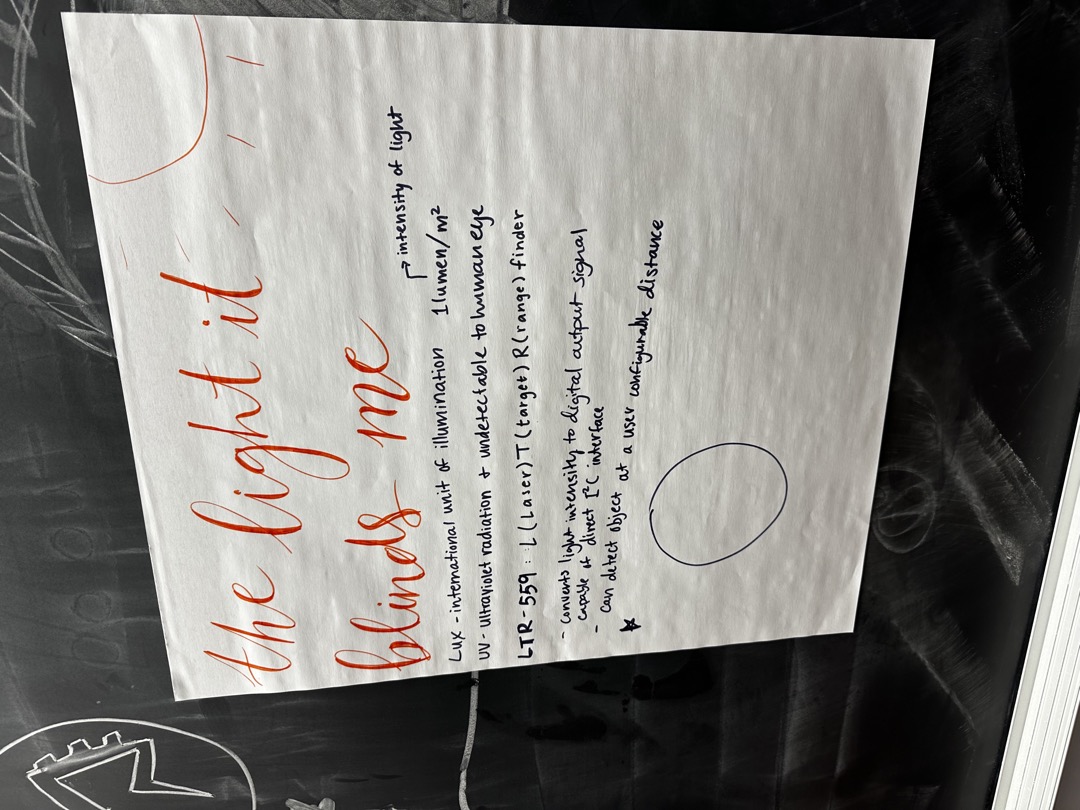 the light it
blinds me
→ intensity of light
Lux - international unit of illumination 1 lumen/m²
UV - ultraviolet radiation + undetectable to human eye
LTR-559: L(Laser)T(target)R(range) finder
- converts light intensity to digital output signal
- capable of direct I²C interface
★ can detect object at a user configurable distance